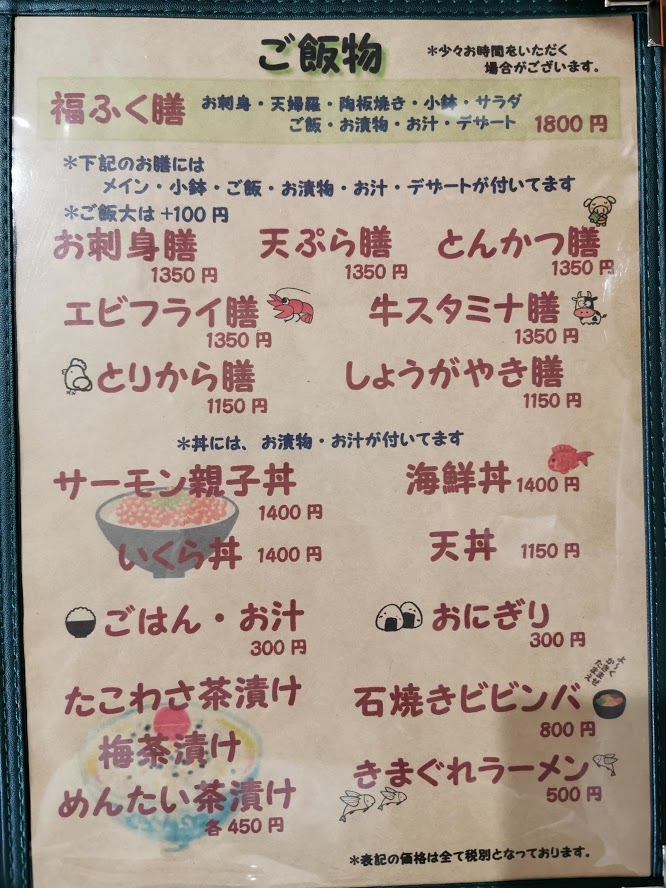 ご飯物
*少々お時間をいただく
場合がございます。
福ふく膳 お刺身・天婦羅・陶板焼き・小鉢・サラダ
ご飯・お漬物・お汁・デザート 1800円
*下記のお膳には
メイン・小鉢・ご飯・お漬物・お汁・デザートが付いてます
*ご飯大は+100円
お刺身膳 天ぷら膳 とんかつ膳
1350円 1350円 1350円
エビフライ膳 牛スタミナ膳
1350円 1350円
とりから膳 しょうがやき膳
1150円 1150円
*丼には、お漬物・お汁が付いてます
サーモン親子丼 海鮮丼 1400円
1400円
いくら丼 1400円 天丼 1150円
ごはん・お汁 おにぎり
300円 300円
たこわさ茶漬け 石焼きビビンバ
よ〜く
かきまぜ
800円
梅茶漬け きまぐれラーメン
めんたい茶漬け 500円
各450円
*表記の価格は全て税別となっております。